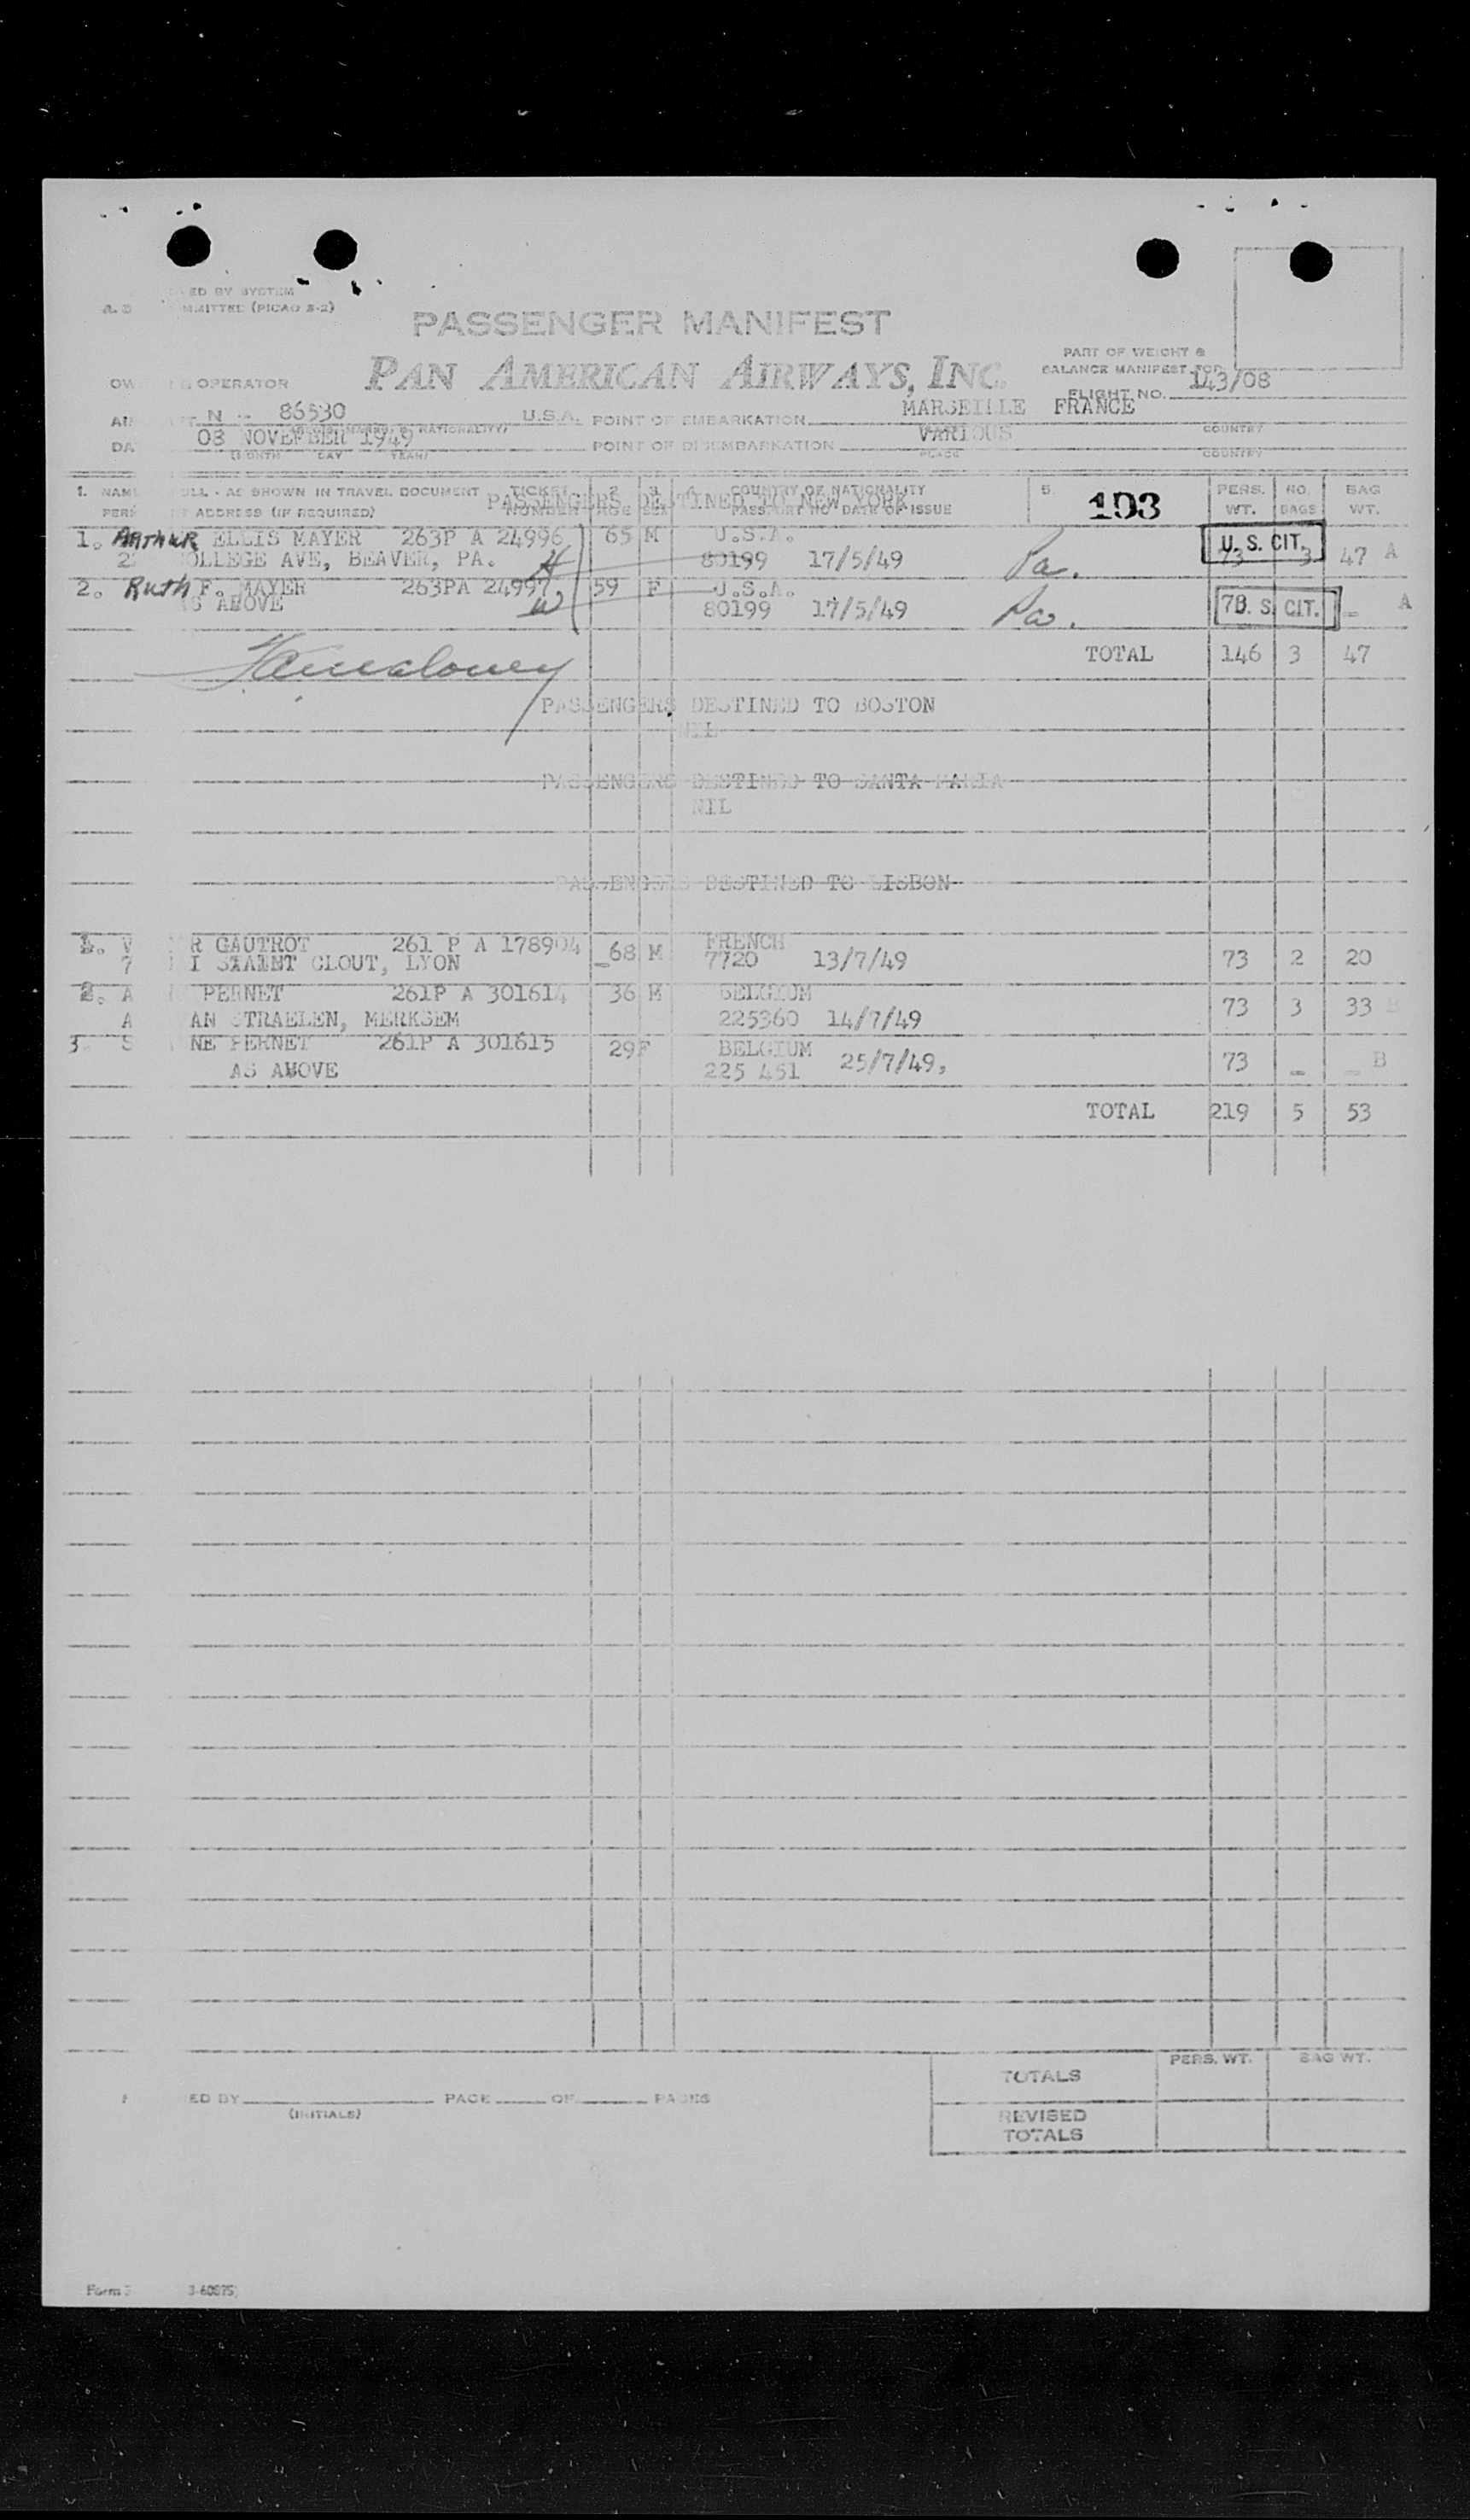 ED BY SYSTEM
MMITTEE (PICAO S-2)
PASSENGER MANIFEST
PAN AMERICAN AIRWAYS, INC.
PART OF WEIGHT &
BALANCE MANIFEST FOR
FLIGHT NO. 143/08
OPERATOR
N - 86530 U.S.A. POINT OF EMBARKATION MARSEILLE FRANCE
03 NOVEMBER 1949 POINT OF DISEMBARKATION VARIOUS
(MONTH DAY YEAR) PLACE COUNTRY COUNTRY
1. NAME ULL - AS SHOWN IN TRAVEL DOCUMENT TICKET NUMBER AGE SEX COUNTRY OF NATIONALITY 5. 103 PERS. WT. NO. BAGS BAG WT.
ADDRESS (IF REQUIRED) PASSPORT NO DATE OF ISSUE
PASSENGERS DESTINED TO NEW YORK
1. ARTHUR ELLIS MAYER 263P A 24996 65 M U.S.A. U. S. CIT.
OLLEGE AVE, BEAVER, PA. H 80199 17/5/49 Pa. 73 3 47 A
2. Ruth F. MAYER 263PA 24997 59 F U.S.A.
AS ABOVE W 80199 17/5/49 Pa. 73 U. S. CIT. - A
TOTAL 146 3 47
PASSENGERS DESTINED TO BOSTON
NIL
PASSENGERS DESTINED TO SANTA MARIA
NIL
PASSENGERS DESTINED TO LISBON
1. V R GAUTROT 261 P A 178904 68 M FRENCH
7 I SIAINT CLOUT, LYON 7720 13/7/49 73 2 20
2. A PERNET 261P A 301614 36 M BELGIUM
A AN STRAELEN, MERKSEM 225360 14/7/49 73 3 33
3. S NE PERNET 261P A 301615 29 F BELGIUM
AS ABOVE 225 451 25/7/49, 73 - - B
TOTAL 219 5 53
PERS. WT. BAG WT.
TOTALS
ED BY PAGE OF PAGES
(INITIALS)
REVISED
TOTALS
Form 3-60875